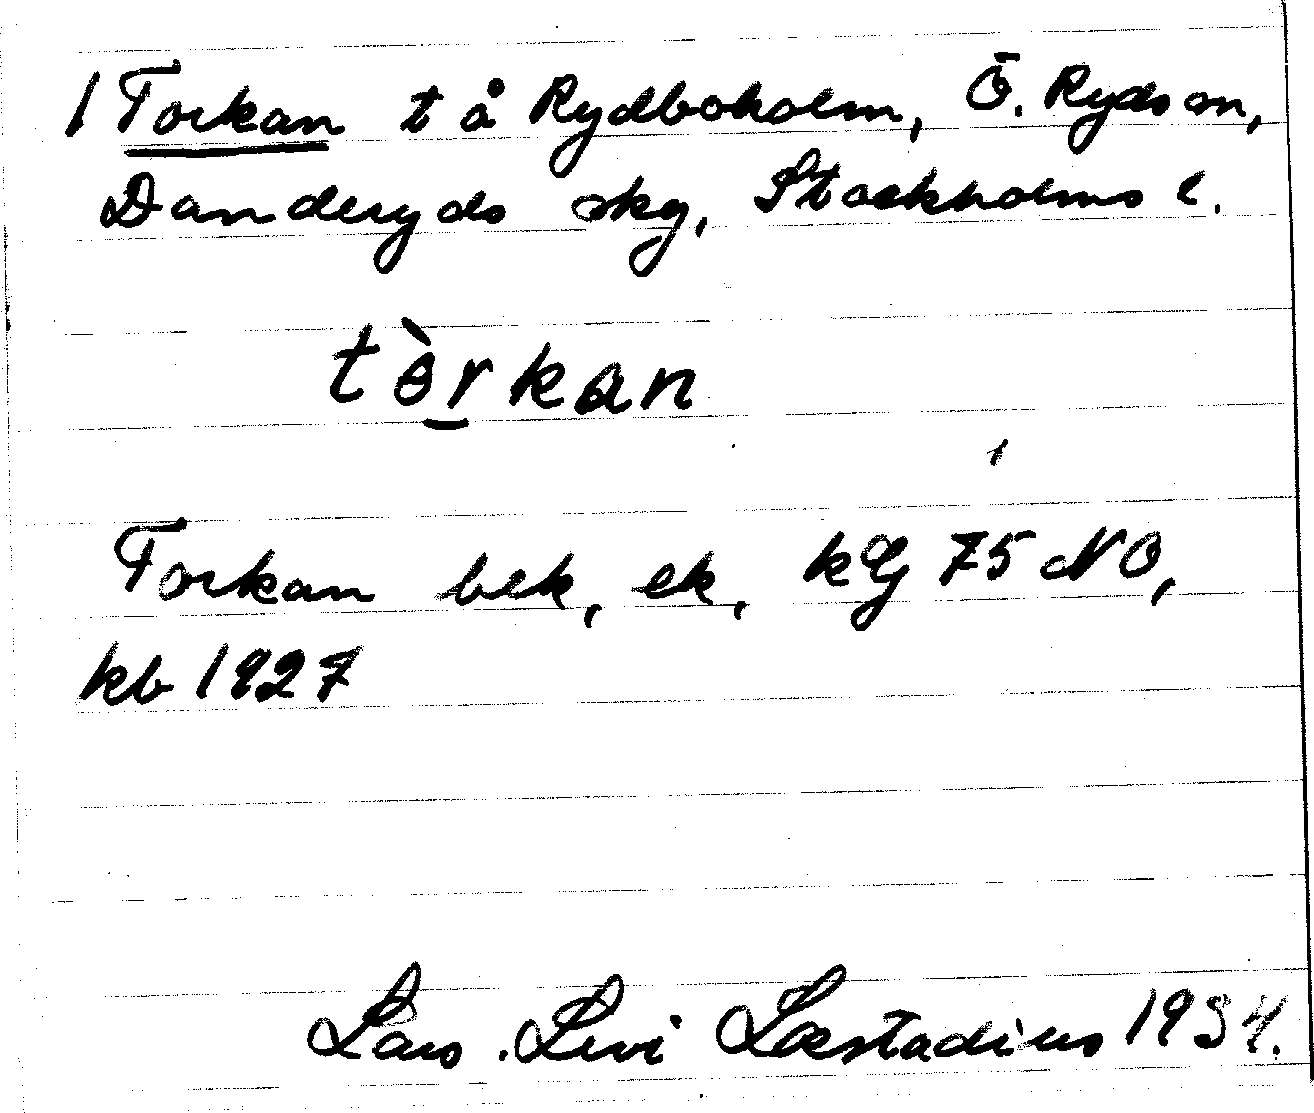 1 Torkan t å Rydboholm, Ö. Ryds sn,
Danderyds skg, Stockholms l.
tòrkan
Torkan bek, ek, kG 75 NO,
kb 1927
Lars Levi Læstadius 1934.